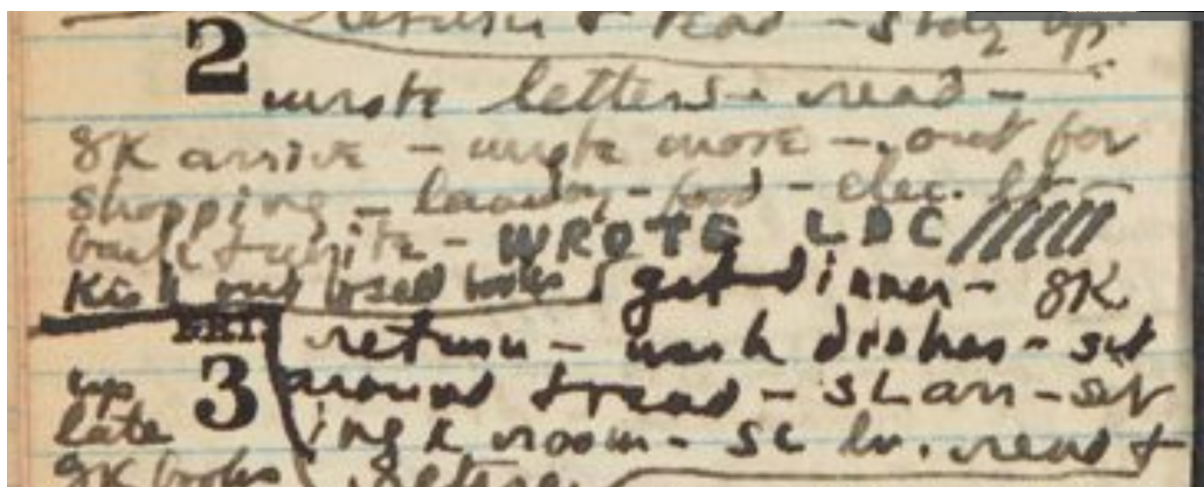 return & read - stay up
2
wrote letters - read -
gK arrive - wrote more - out for
shopping - laundry - food - elec.
back & write - WROTE LDC
used books get dinner - gK
FRI.
return - wash dishes - sit
up 3 around & read - SL arr - sit
late in gK room - SL lv. read &
gK books retire